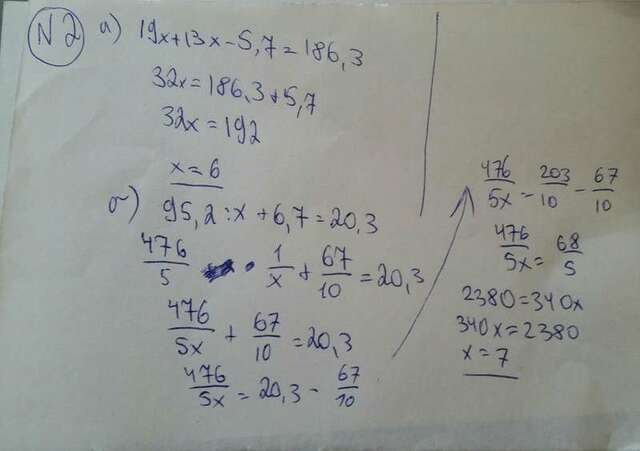 N2 а) 19x+13x-5,7=186,3
32x=186,3+5,7
32x=192
x=6
б) 95,2:x+6,7=20,3
476/5 · 1/x + 67/10 =20,3
476/5x + 67/10 =20,3
476/5x = 20,3 - 67/10
476/5x = 203/10 - 67/10
476/5x = 68/5
2380=340x
340x=2380
x=7